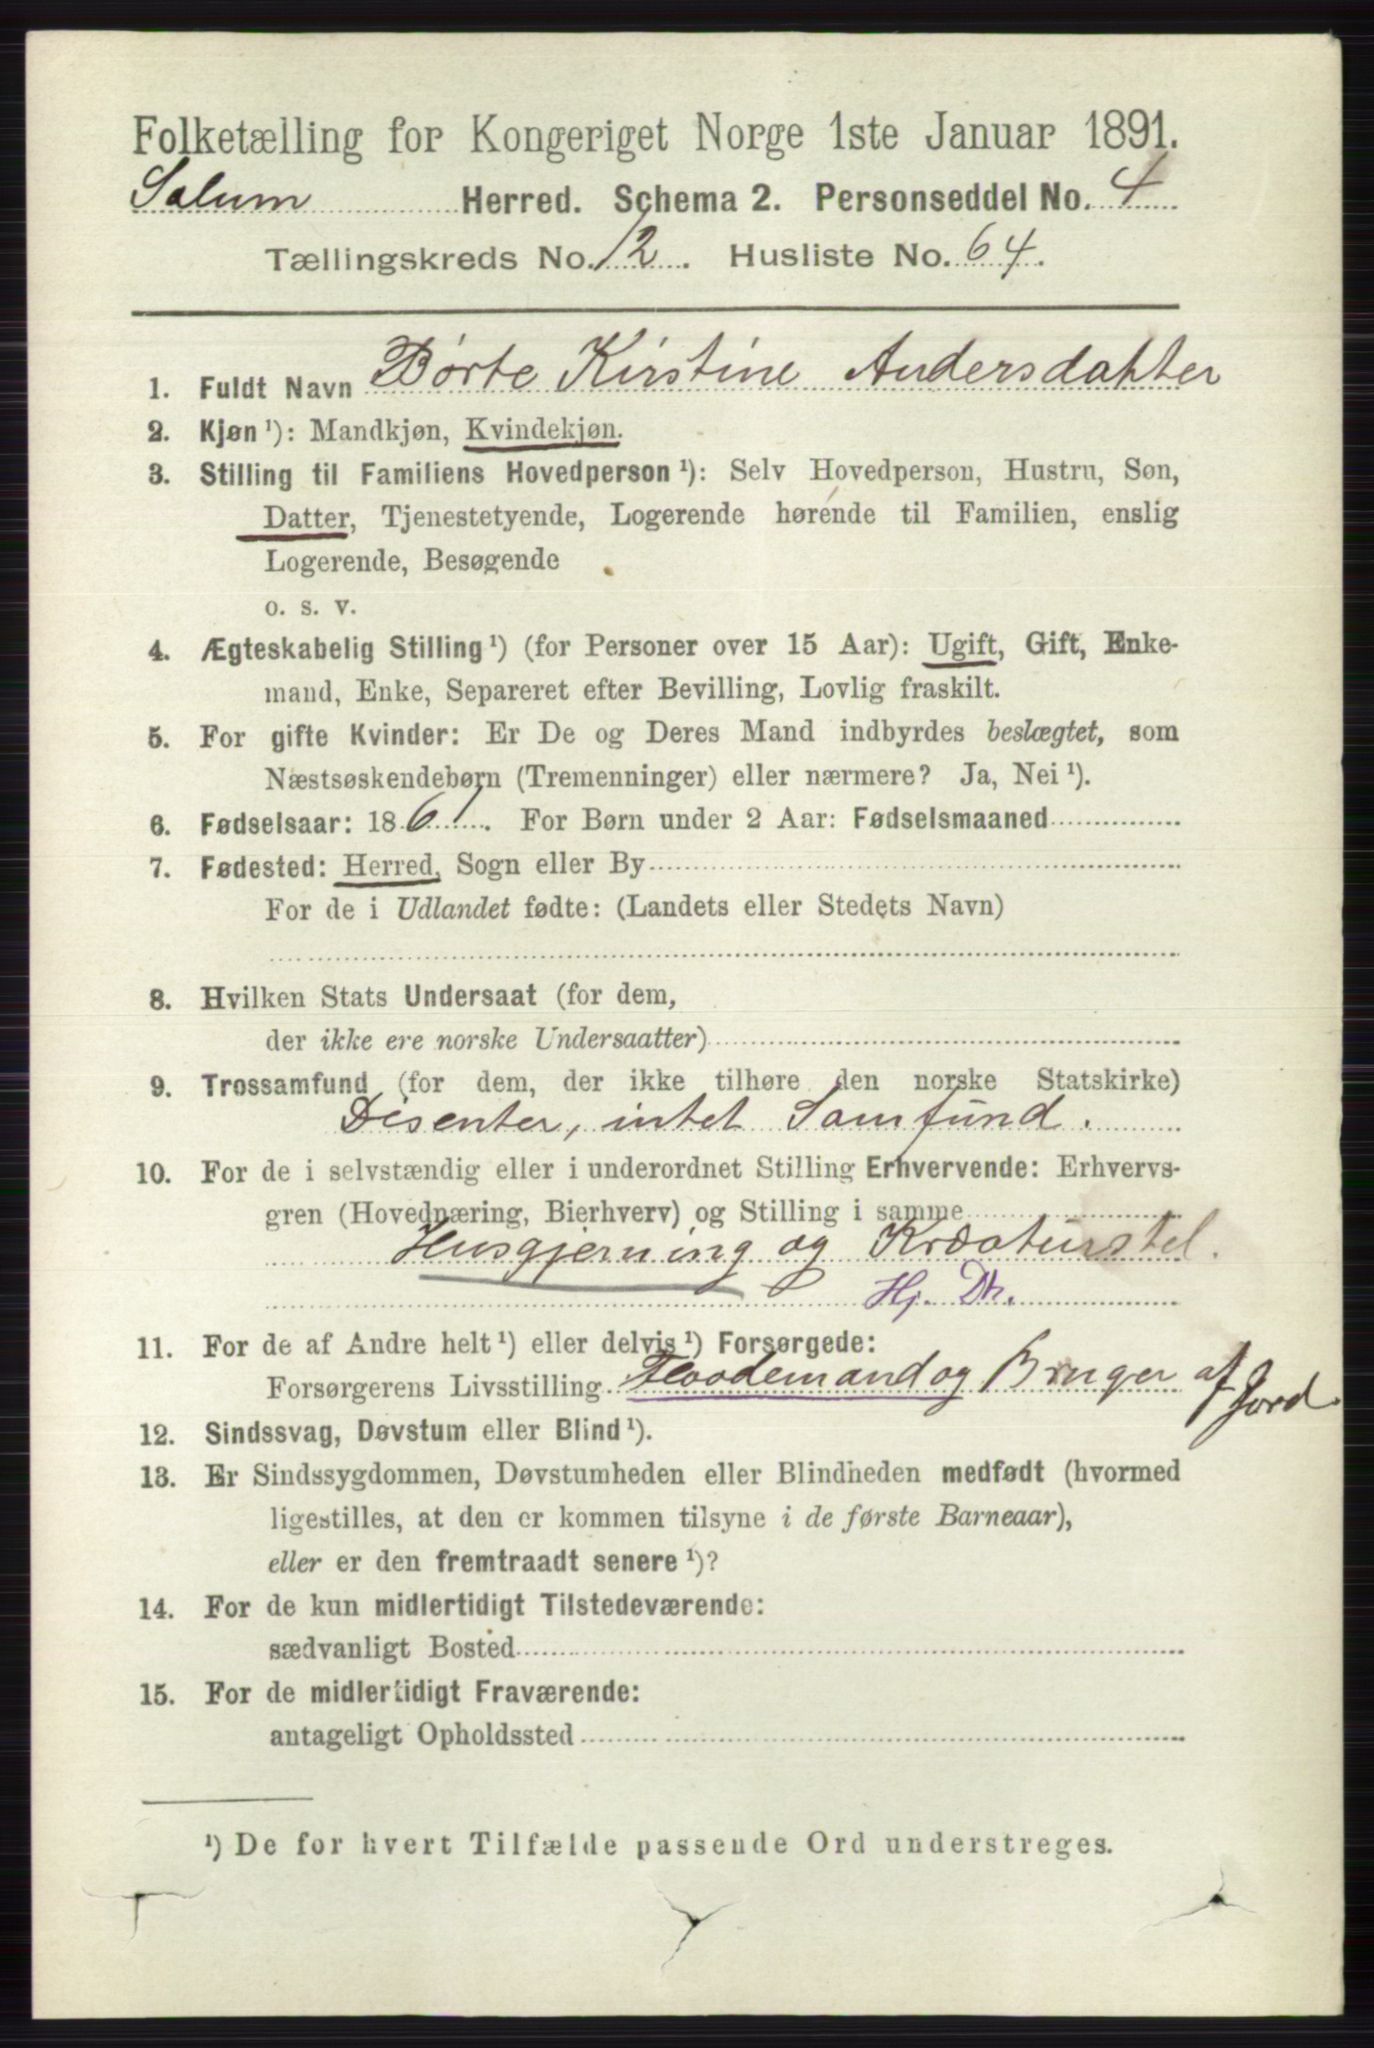 Folketælling for Kongeriget Norge 1ste Januar 1891.
Solum Herred. Schema 2. Personseddel No. 4
Tællingskreds No. 12. Husliste No. 64.
1. Fuldt Navn Børte Kirstine Andersdatter
2. Kjøn ¹): Mandkjøn, Kvindekjøn.
3. Stilling til Familiens Hovedperson ¹): Selv Hovedperson, Hustru, Søn,
Datter, Tjenestetyende, Logerende hørende til Familien, enslig
Logerende, Besøgende
o. s. v.
4. Ægteskabelig Stilling ¹) (for Personer over 15 Aar): Ugift, Gift, Enke-
mand, Enke, Separeret efter Bevilling, Lovlig fraskilt.
5. For gifte Kvinder: Er De og Deres Mand indbyrdes beslægtet, som
Næstsøskendebørn (Tremenninger) eller nærmere? Ja, Nei ¹).
6. Fødselsaar: 1861. For Børn under 2 Aar: Fødselsmaaned
7. Fødested: Herred, Sogn eller By
For de i Udlandet fødte: (Landets eller Stedets Navn)
8. Hvilken Stats Undersaat (for dem,
der ikke ere norske Undersaatter)
9. Trossamfund (for dem, der ikke tilhøre den norske Statskirke)
Disenter, intet Samfund.
10. For de i selvstændig eller i underordnet Stilling Erhvervende: Erhvervs-
gren (Hovednæring, Bierhverv) og Stilling i samme
Husgjerning og Kreaturstel.
Hj. Dtr.
11. For de af Andre helt ¹) eller delvis ¹) Forsørgede:
Forsørgerens Livsstilling Floodemand og Bruger af Jord
12. Sindssvag, Døvstum eller Blind ¹).
13. Er Sindssygdommen, Døvstumheden eller Blindheden medfødt (hvormed
ligestilles, at den er kommen tilsyne i de første Barneaar),
eller er den fremtraadt senere ¹)?
14. For de kun midlertidigt Tilstedeværende:
sædvanligt Bosted
15. For de midlertidigt Fraværende:
antageligt Opholdssted
¹) De for hvert Tilfælde passende Ord understreges.